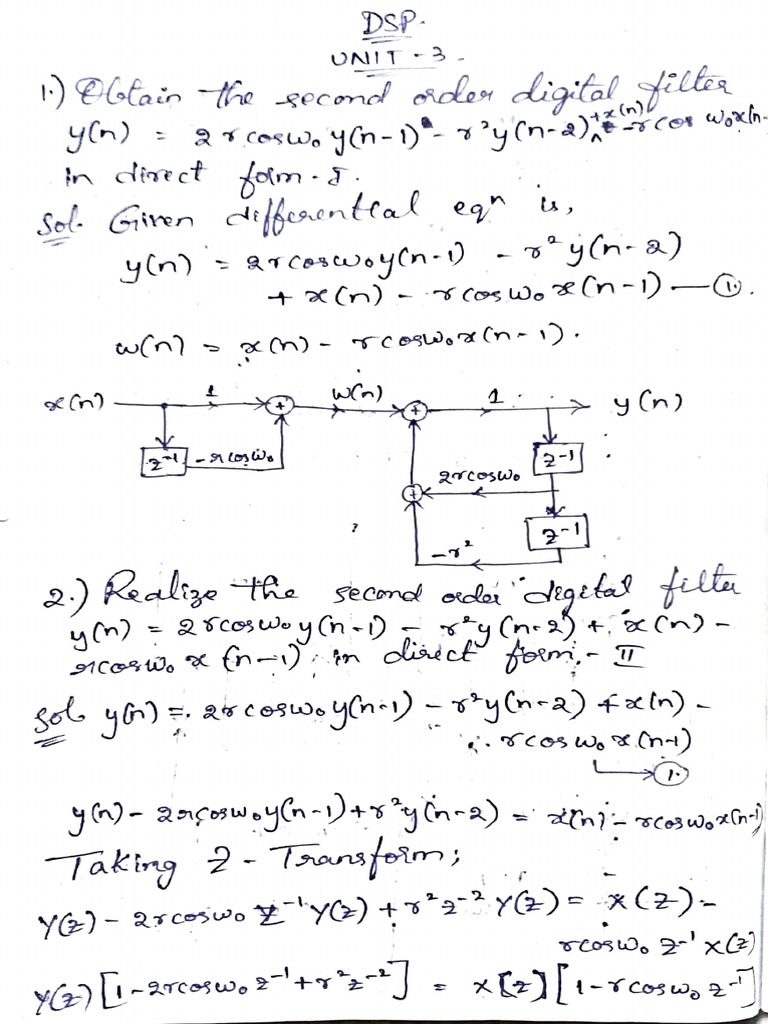 DSP.
UNIT - 3 -
1.) Obtain the second order digital filter
y(n) = 2r cosω₀ y(n-1) - r²y(n-2) + x(n) - r cos ω₀ x(n-
in direct form - I.
Sol. Given differential eqⁿ is,
y(n) = 2r cosω₀ y(n-1) - r² y(n-2)
+ x(n) - r cos ω₀ x(n-1) — ①.
w(n) = x(n) - r cosω₀ x(n-1).
x(n) 1 + w(n) + 1 y(n)
z⁻¹ -r cosω₀ z⁻¹
2r cosω₀
+
z⁻¹
-r²
2.) Realize the second order digital filter
y(n) = 2r cosω₀ y(n-1) - r²y(n-2) + x(n) -
r cosω₀ x(n-1) in direct form - II
Sol. y(n) = 2r cosω₀ y(n-1) - r²y(n-2) + x(n) -
r cos ω₀ x(n-1)
①.
y(n) - 2r cosω₀ y(n-1) + r²y(n-2) = x(n) - r cosω₀ x(n-1)
Taking Z - Transform;
Y(z) - 2r cosω₀ z⁻¹ Y(z) + r² z⁻² Y(z) = X(z) -
r cosω₀ z⁻¹ X(z)
Y(z) [1 - 2r cosω₀ z⁻¹ + r² z⁻²] = X[z] [1 - r cosω₀ z⁻¹]